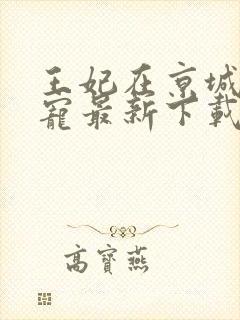 王妃在京城
寵最新下載
高寶燕